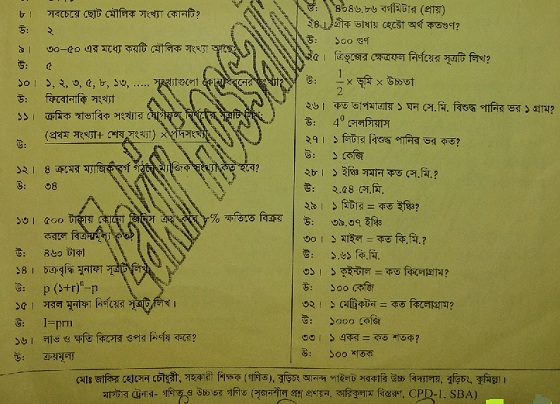 ৮। সবচেয়ে ছোট মৌলিক সংখ্যা কোনটি?
উ: ২
৯। ৩০-৫০ এর মধ্যে কয়টি মৌলিক সংখ্যা আছে?
উ: ৫
১০। ১, ২, ৩, ৫, ৮, ১৩, ..... সংখ্যাগুলো কোন ধরনের সংখ্যা?
উ: ফিবোনাক্কি সংখ্যা
১১। ক্রমিক স্বাভাবিক সংখ্যার যোগফল নির্ণয়ের সূত্রটি লিখ?
উ: (প্রথম সংখ্যা+ শেষ সংখ্যা) × পদসংখ্যা
১২। ৪ ক্রমের ম্যাজিক বর্গ গঠনে ম্যাজিক সংখ্যা কত হবে?
উ: ৩৪
১৩। ৫০০ টাকায় কোনো জিনিস ক্রয় করে ৮% ক্ষতিতে বিক্রয়
করলে বিক্রয়মূল্য কত?
উ: ৪৬০ টাকা
১৪। চক্রবৃদ্ধি মুনাফা সূত্রটি লিখ।
উ: p (১+r)ⁿ–p
১৫। সরল মুনাফা নির্ণয়ের সূত্রটি লিখ।
উ: I=prn
১৬। লাভ ও ক্ষতি কিসের ওপর নির্ণয় করে?
উ: ক্রয়মূল্য
উ: ৪০৪৬.৮৬ বর্গমিটার (প্রায়)
২৪। গ্রীক ভাষায় হেক্টো অর্থ কতগুণ?
উ: ১০০ গুণ
২৫। ত্রিভুজের ক্ষেত্রফল নির্ণয়ের সূত্রটি লিখ?
উ: 1/2 × ভূমি × উচ্চতা
২৬। কত তাপমাত্রায় ১ ঘন সে.মি. বিশুদ্ধ পানির ভর ১ গ্রাম?
উ: 4⁰ সেলসিয়াস
২৭। ১ লিটার বিশুদ্ধ পানির ভর কত?
উ: ১ কেজি
২৮। ১ ইঞ্চি সমান কত সে.মি.?
উ: ২.৫৪ সে.মি.
২৯। ১ মিটার = কত ইঞ্চি?
উ: ৩৯.৩৭ ইঞ্চি
৩০। ১ মাইল = কত কি.মি.?
উ: ১.৬১ কি.মি.
৩১। ১ কুইন্টাল = কত কিলোগ্রাম?
উ: ১০০ কেজি
৩২। ১ মেট্রিকটন = কত কিলোগ্রাম?
উ: ১০০০ কেজি
৩৩। ১ একর = কত শতক?
উ: ১০০ শতক
মোঃ জাকির হোসেন চৌধুরী, সহকারী শিক্ষক (গণিত), বুড়িচং আনন্দ পাইলট সরকারি উচ্চ বিদ্যালয়, বুড়িচং, কুমিল্লা।
মাস্টার ট্রেনার- গণিত ও উচ্চতর গণিত (সৃজনশীল প্রশ্ন প্রণয়ন, কারিকুলাম বিস্তরণ, CPD-1, SBA)